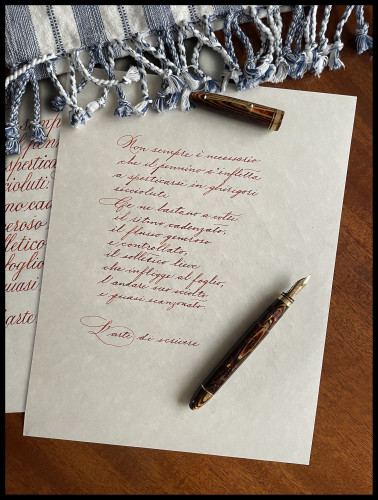 Non sempre è necessario
che il pennino s'infletta
a sperticarsi in ghirigori
Ce ne bastano a volte
il ritmo cadenzato,
il flusso generoso
e controllato,
il solletico lieve
che infligge al foglio,
l'andare suo sciolto
e quasi scanzonato.
L'arte di scrivere
eroso
lletico
foglio
quasi
arte